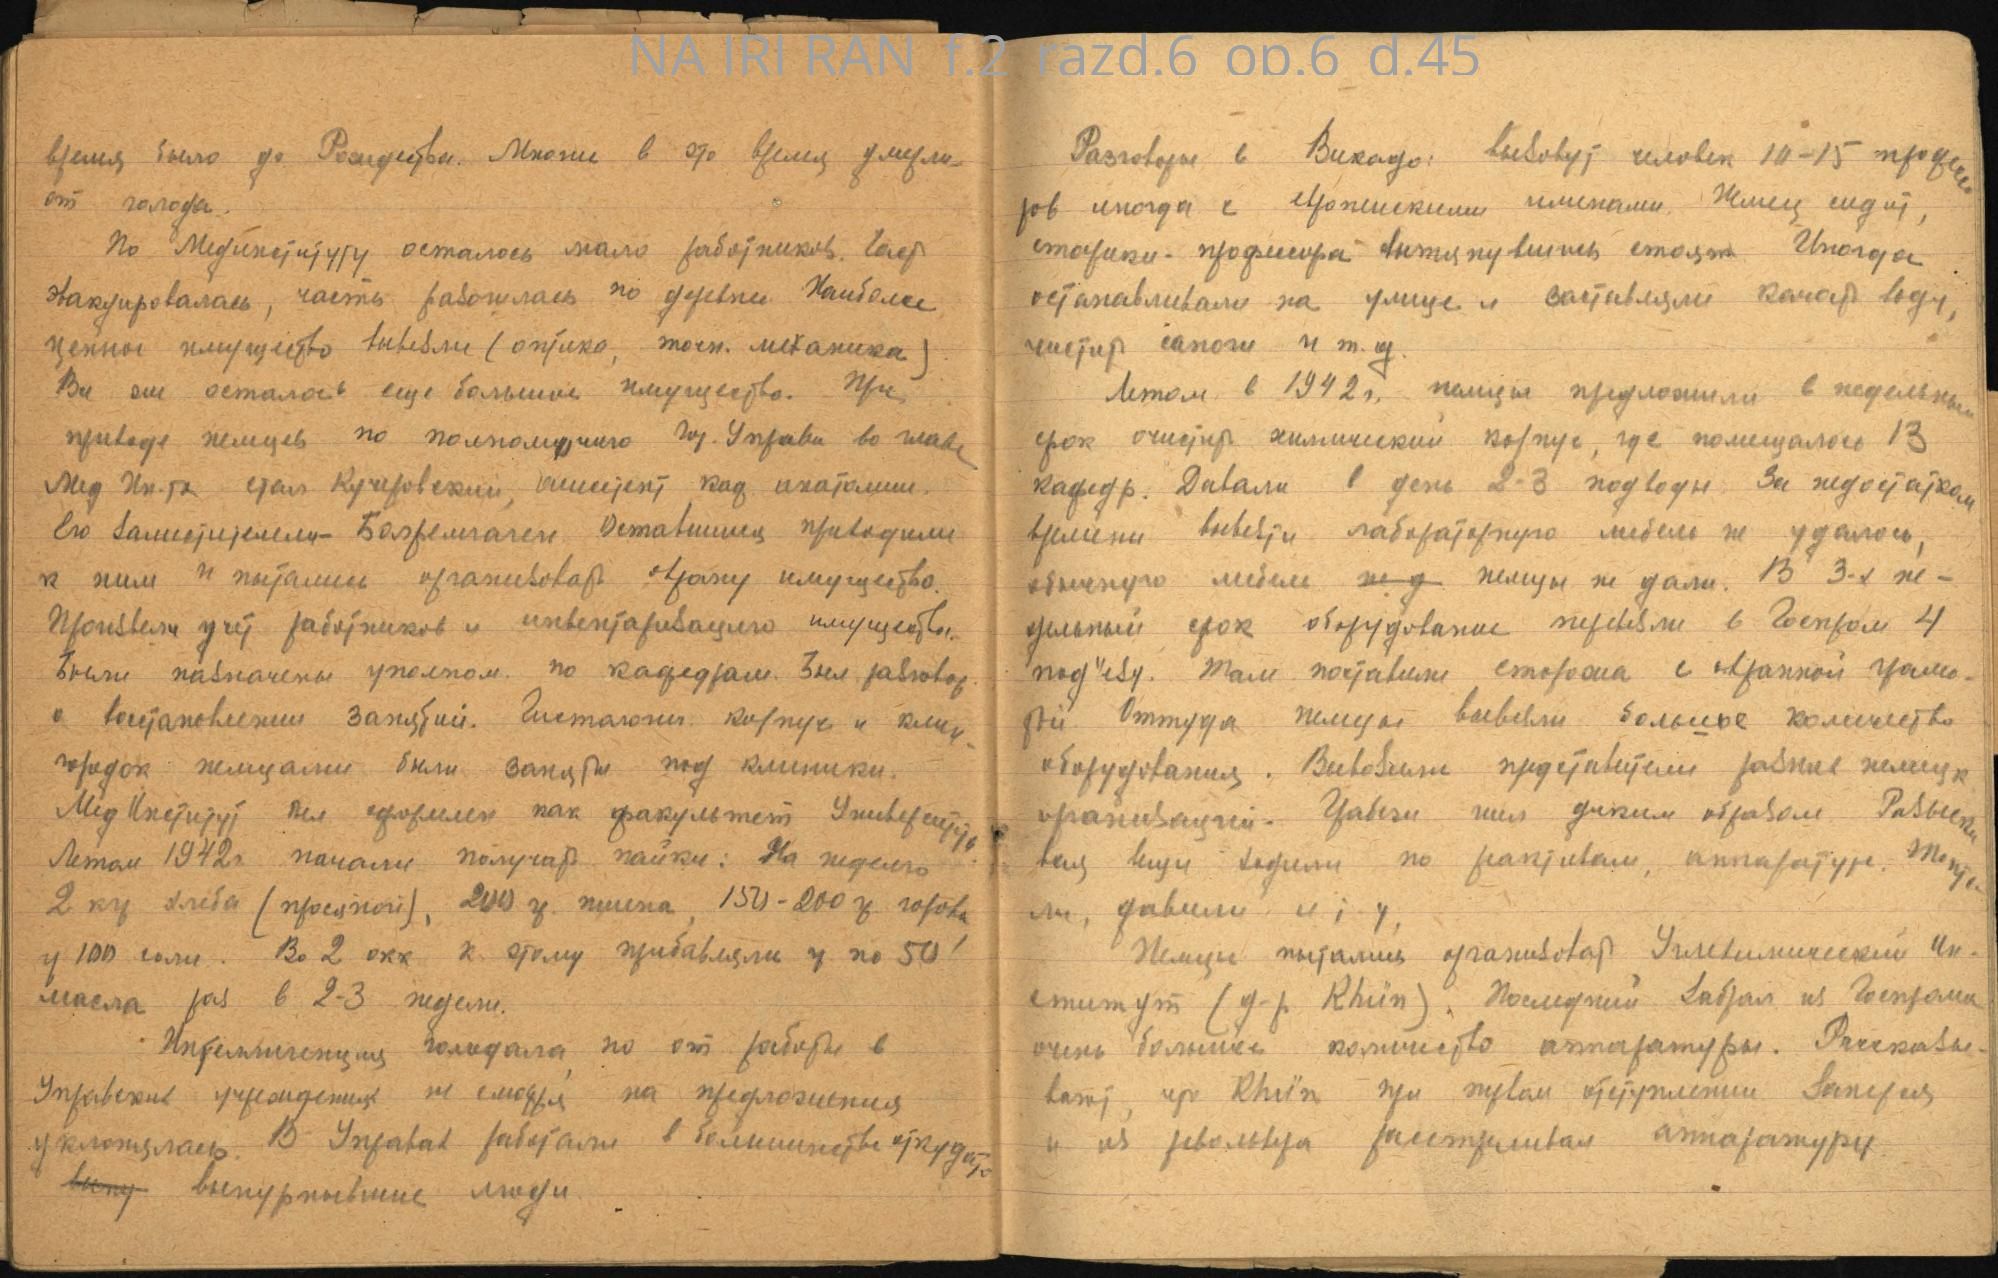 NA IRI RAN f.2 razd.6 op.6 d.45
время было до Рождества. Многие в это время умерли
от голода.
По Мединституту осталось мало работников. Часть
эвакуировалась, часть разошлась по деревне Наиболее
ценное имущество вывезли (оптика, точн. механика)
Все же осталось еще большое имущество. При
приходе немцев по полномочию Гор. Управы во главе
Мед Ин-та стал Кучеровский, ассистент каф анатомии.
Его заместителем Оставшиеся приходили
к ним и пытались организовать охрану имущества.
Произвели учет работников и инвентаризацию имущества.
Были назначены уполном. по кафедрам. Был разговор
о восстановлении занятий. корпус и клин.
городок немцами были заняты под клиники.
Мед Институт был оформлен как факультет Университета.
Летом 1942г начали получать пайки: На неделю
2 кг хлеба (просяной), 200 г. пшена, 150-200 г гороха
и 100 соли. Во 2 окк к этому прибавляли и по 50
масла раз в 2-3 недели.
Интеллигенция голодала, но от работы в
Управских учреждениях не смотря на предложения
уклонялась. В Управах работали в большинстве откуда то
выну вынурнывшие люди
Разговоры в Викадо: вызовут человек 10-15 професс
ров иногда с европейскими именами. Немец сидит,
старики-профессора вытянувшись стоят Иногда
останавливали на улице и заставляли качать воду,
чистить сапоги и т.д.
Летом в 1942г. немцы предложили в недельный
срок очистить химический корпус, где помещалось 13
кафедр. Давали в день 2-3 подводы За недостатком
времени вывезти лабораторную мебель не удалось,
обычную мебель не д немцы не дали. В 3-х не-
дельный срок оборудование перевезли в Госпром 4
под"езд. Там поставили сторожа с охранной грамо-
той Оттуда немцы вывезли большое количество
оборудования. Вывозили представители разных немецк
организаций. Грабеж шел диким образом Разыски
вая вещи ходили по реактивам, аппаратуре. Топта
ли, давили и т. д.
Немцы пытались организовать Углехимический Ин-
ститут (д-р Rhün). Последний забрал из Госпрома
очень большое количество аппаратуры. Рассказы-
вают, что Rhün при первом отступлении заперся
и из револьвера расстреливал аппаратуру